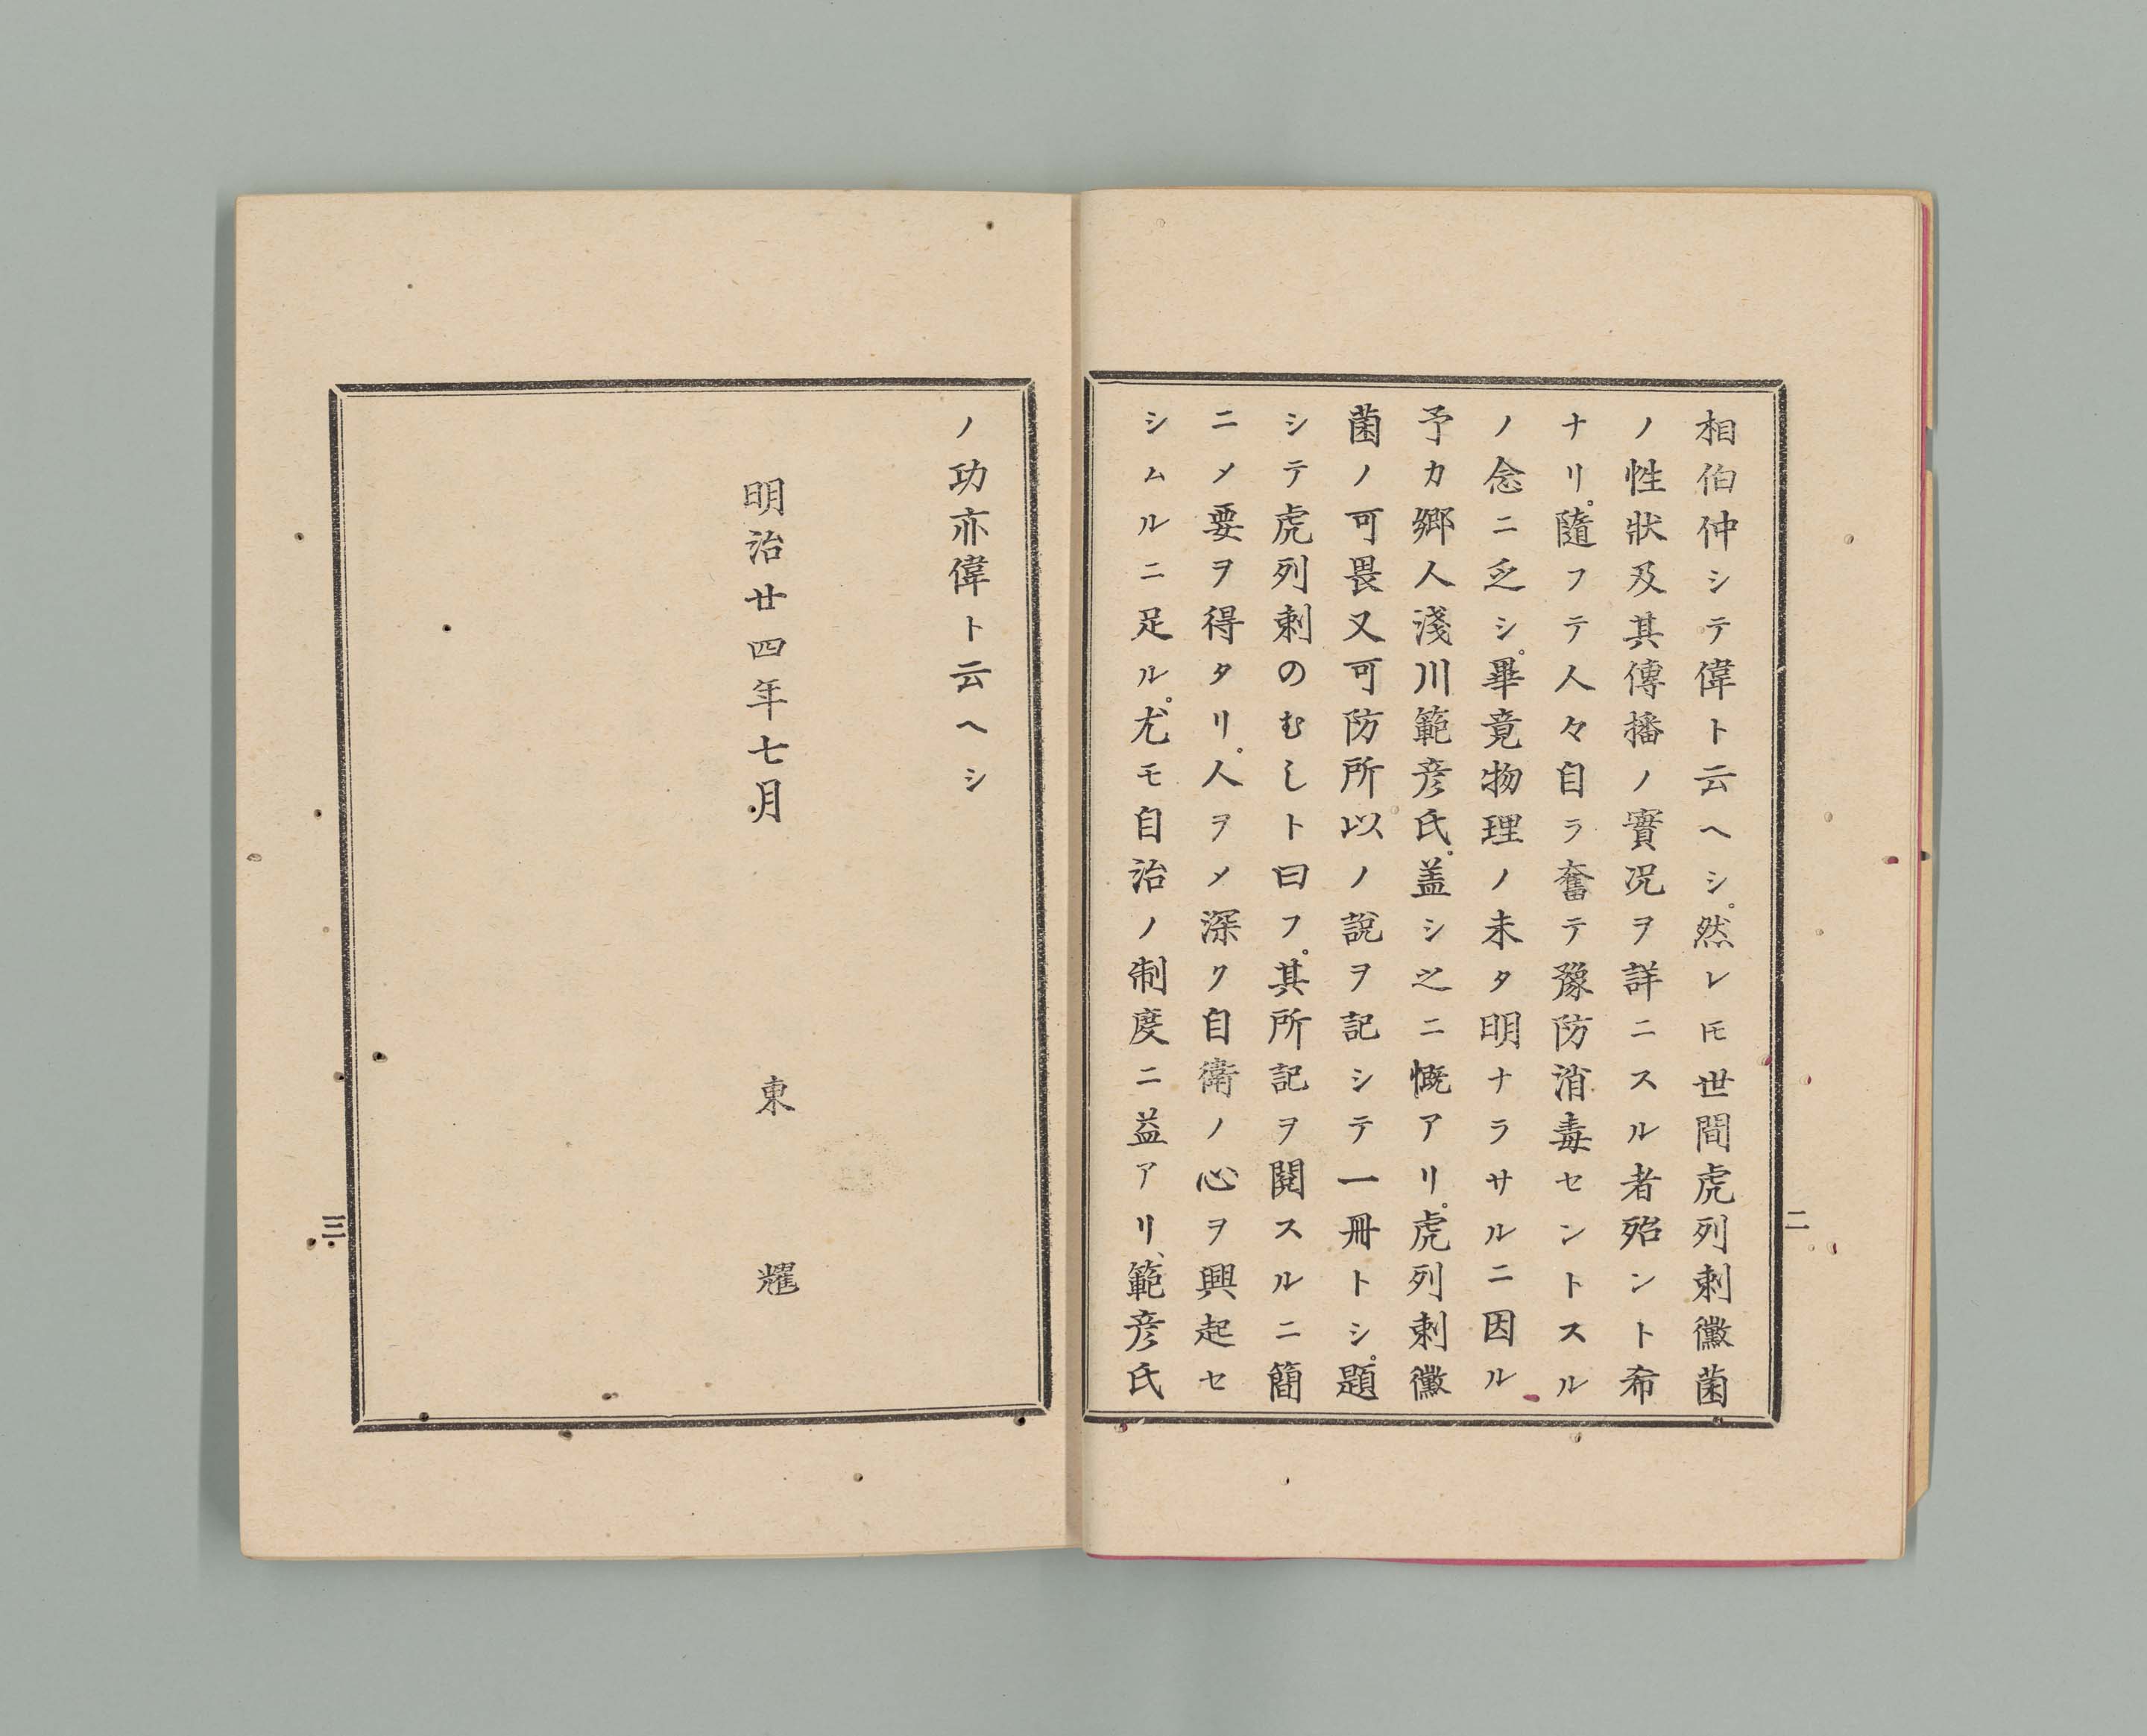 相伯仲シテ偉ト云ヘシ。然レ𪜈世間虎列剌黴菌
ノ性狀及其傳播ノ實况ヲ詳ニスル者殆ント希
ナリ。隨フテ人々自ラ奮テ豫防消毒セントスル
ノ念ニ乏シ。畢竟物理ノ未タ明ナラサルニ因ル
予カ鄉人淺川範彦氏。盖シ之ニ慨アリ。虎列剌黴
菌ノ可畏又可防所以ノ說ヲ記シテ一冊トシ。題
シテ虎列剌のむしト曰フ。其所記ヲ閱スルニ簡
ニメ要ヲ得タリ。人ヲメ深ク自衛ノ心ヲ興起セ
シムルニ足ル。尤モ自治ノ制度ニ益アリ、範彦氏
二
ノ功亦偉ト云ヘシ
明治廿四年七月
東 耀
三